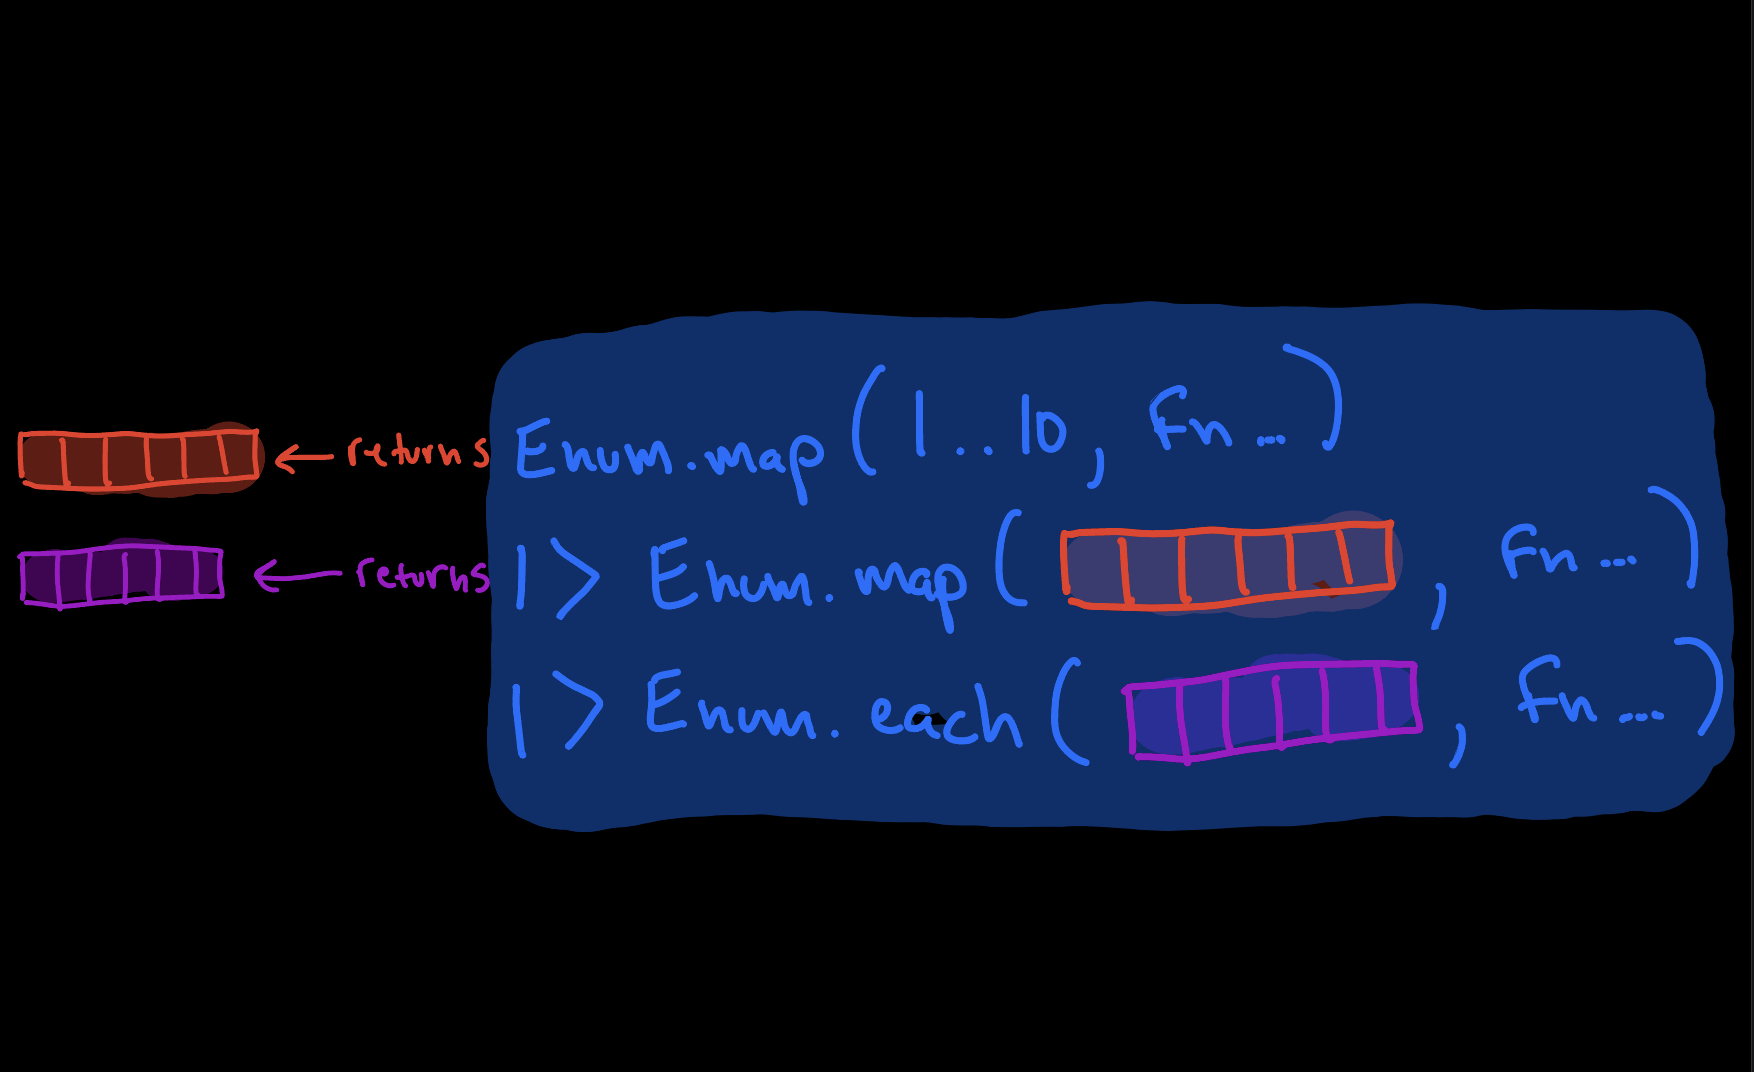 returns Enum.map(1..10, fn...)
returns |> Enum.map( , fn...)
|> Enum.each( , fn...)